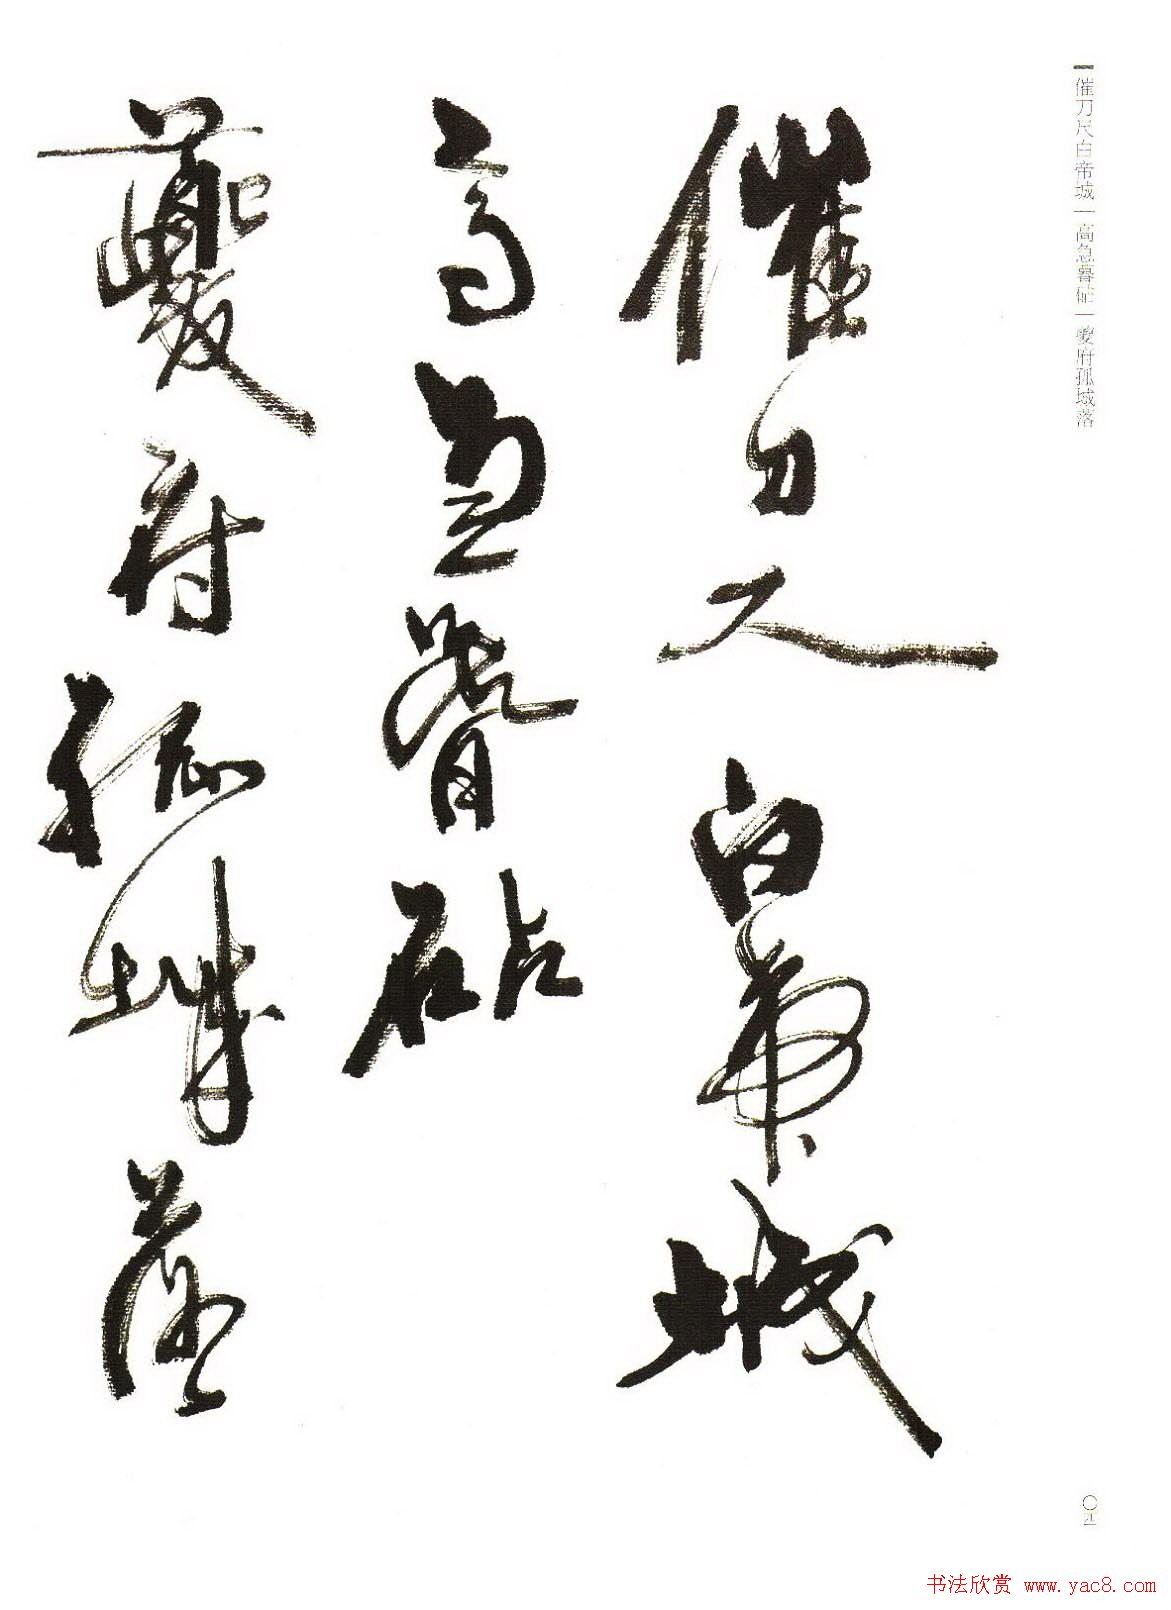 催刀尺白帝城|高急暮砧|夔府孤城落
催刀尺白帝城
高急暮砧
夔府孤城落
书法欣赏 www.yac8.com